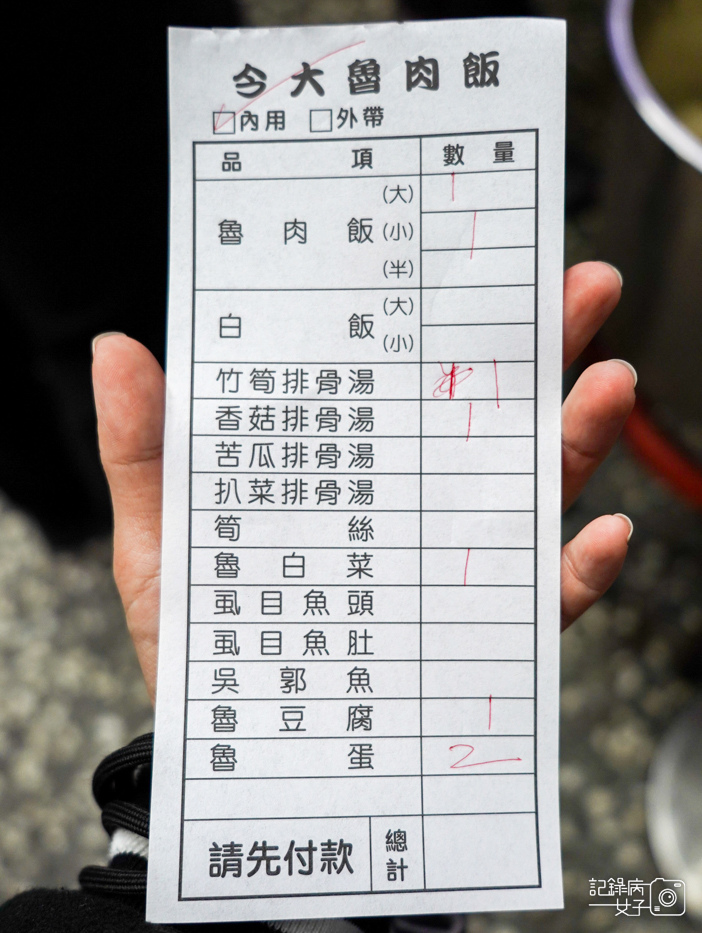 今大魯肉飯
☑內用 □外帶
品項 數量
魯肉飯 (大) 1
(小) 1
(半)
白飯 (大)
(小)
竹筍排骨湯 1
香菇排骨湯 1
苦瓜排骨湯
扒菜排骨湯
筍絲
魯白菜 1
虱目魚頭
虱目魚肚
吳郭魚
魯豆腐 1
魯蛋 2
請先付款 總計
記錄病
女子